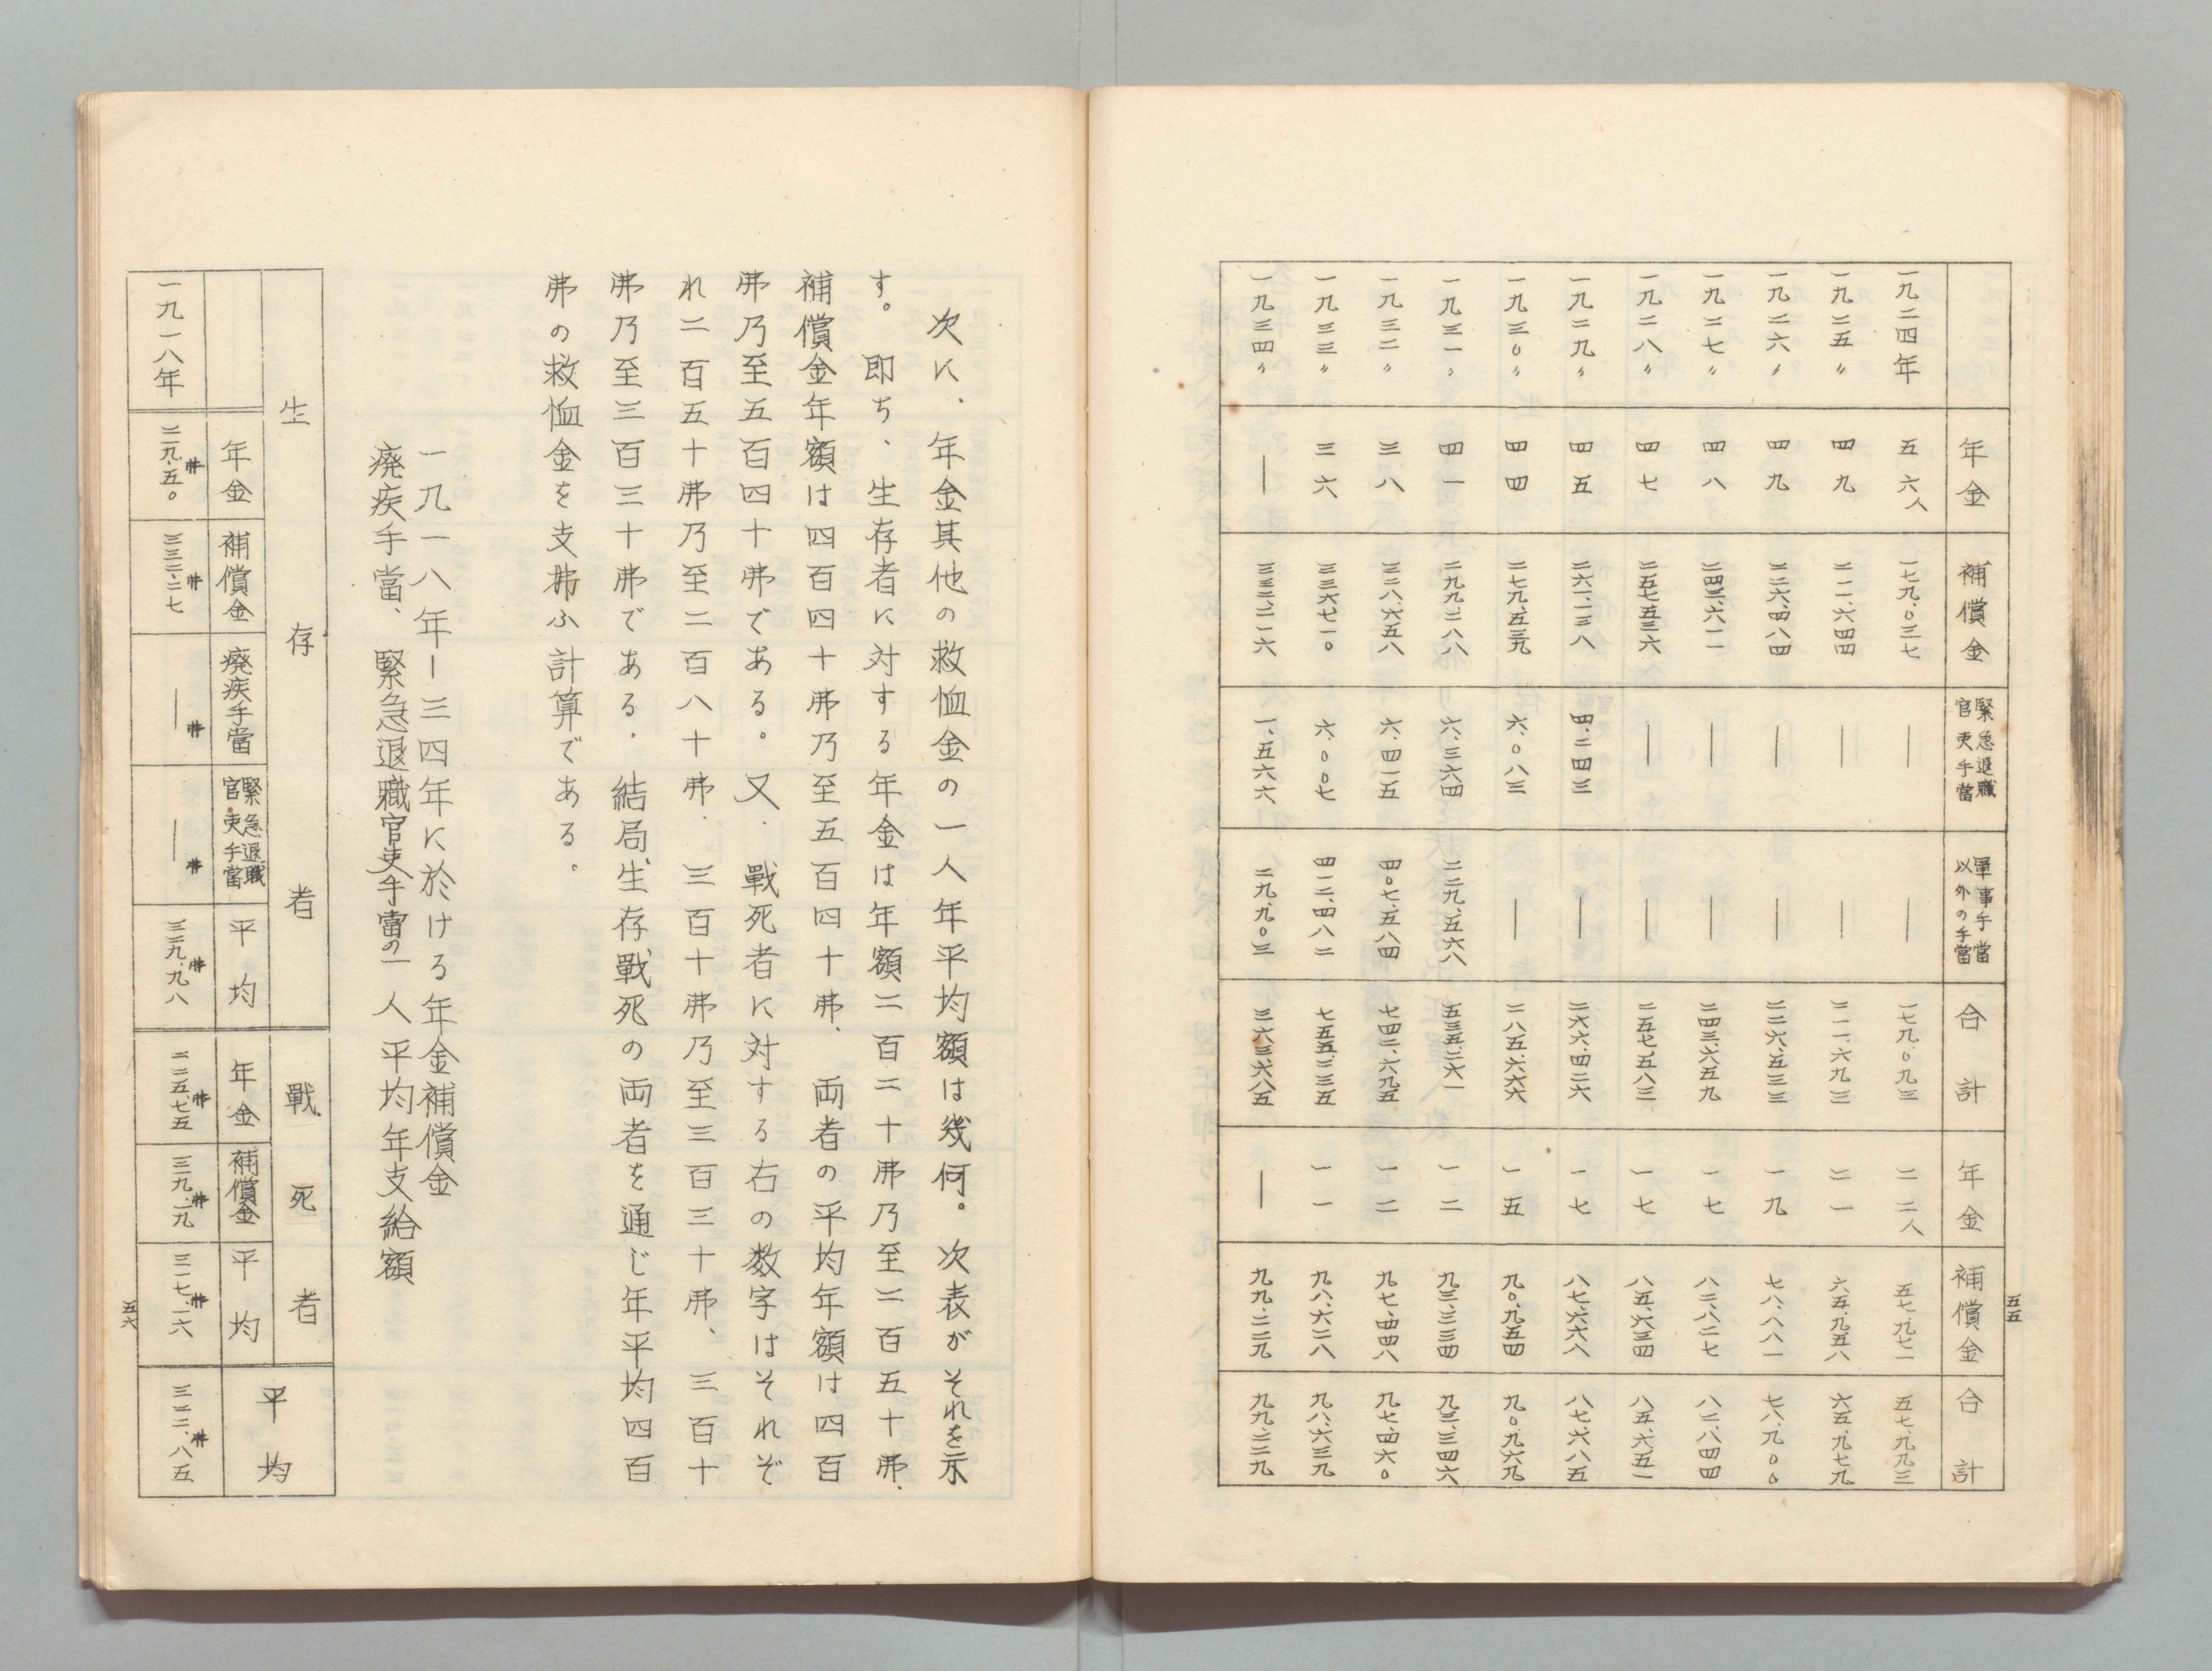 五五
年金 補償金 緊急退職官吏手當 軍事手當以外の手當 合計 年金 補償金 合計
一九二四年 五六人 一七九、〇三七 ― ― 一七九、〇九三 二二人 五七、九七一 五七、九九三
一九二五〃 四九 二一一、六四四 ― ― 二一一、六九三 二一 六五、九五八 六五、九七九
一九二六〃 四九 二二六、四八四 ― ― 二二六、五三三 一九 七八、八八一 七八、九〇〇
一九二七〃 四八 二四三、六一一 ― ― 二四三、六五九 一七 八二、八二七 八二、八四四
一九二八〃 四七 二五七、五三六 ― ― 二五七、五八三 一七 八五、六三四 八五、六五一
一九二九〃 四五 二六二、一三八 四、二四三 ― 二六六、四二六 一七 八七、六六八 八七、六八五
一九三〇〃 四四 二七九、五三九 六、〇八三 ― 二八五、六六六 一五 九〇、九五四 九〇、九六九
一九三一〃 四一 二九九、二八八 六、三六四 二二九、五六八 五三五、二六一 一二 九三、三三四 九三、三四六
一九三二〃 三八 三二八、六五八 六、四一五 四〇七、五八四 七四二、六九五 一二 九七、四四八 九七、四六〇
一九三三〃 三六 三三六、七一〇 六、〇〇七 四一二、四八二 七五五、二三五 一一 九八、六二八 九八、六三九
一九三四〃 ― 三三二、二一六 一、五六六 二九、九〇三 三六三、六八五 ― 九九、二二九 九九、二二九
次に、年金其他の救恤金の一人年平均額は幾何。次表がそれを示
す。即ち、生存者に対する年金は年額二百二十弗乃至二百五十弗、
補償金年額は四百四十弗乃至五百四十弗、両者の平均年額は四百
弗乃至五百四十弗である。又、戰死者に対する右の数字はそれぞ
れ二百五十弗乃至二百八十弗、三百十弗乃至三百三十弗、三百十
弗乃至三百三十弗である。結局生存戰死の両者を通じ年平均四百
弗の救恤金を支拂ふ計算である。
一九一八年―三四年に於ける年金補償金
廃疾手當、緊急退職官吏手當の一人平均年支給額
生存者 戰死者 平均
年金 補償金 廃疾手當 緊急退職官吏手當 平均 年金 補償金 平均
一九一八年 二一九、五〇弗 三三二、二七弗 ―弗 ―弗 三二九、九八弗 二二五、七五弗 三一九、一九弗 三一七、一六弗 三二二、八五弗
五六